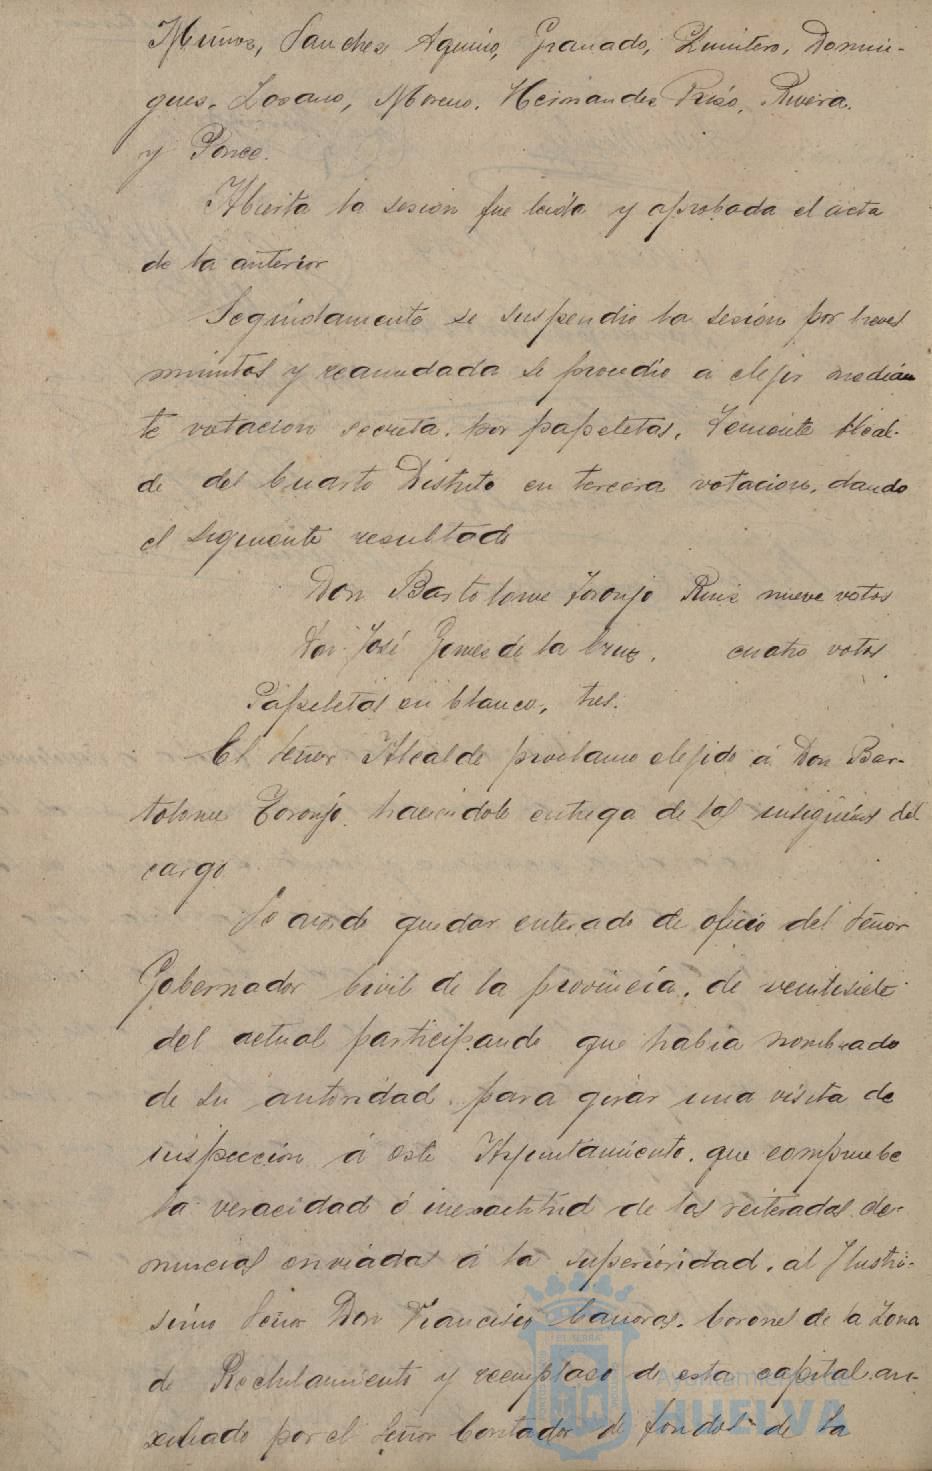 Muñoz, Sanchez Aquino, Granado, Quintero, Domin-
guez, Lozano, Moreno, Hernandez Pinzo, Rivera
y Ponce.
Abierta la sesion fue leida y aprobada el acta
de la anterior
Seguidamente se suspendio la sesión por breves
minutos y reanudada se procedio a elejir median
te votacion secreta, por papeletas, Teniente Alcal-
de del Cuarto Distrito en tercera votacion, dando
el siguiente resultado
Don Bartolome Toronjo Ruiz nueve votos
Don José Gomez de la Cruz, cuatro votos
Papeletas en blanco, tres.
El Señor Alcalde proclamo elejido á Don Bar-
tolome Toronjo haciendole entrega de las insignias del
cargo
Se acordo quedar enterado de oficio del Señor
Gobernador Civil de la provincia, de veintisiete
del actual participando que habia nombrado
de su autoridad para girar una visita de
inspeccion á este Ayuntamiento, que compruebe
la veracidad ó inexactitud de las reiteradas de-
nuncias enviadas á la superioridad, al Ilustri-
simo Señor Don Francisco Canovas, Coronel de la Zona
de Reclutamiento y reemplazo de esta capital au-
xiliado por el Señor Contador de fondos de la
Ayuntamiento de
HUELVA